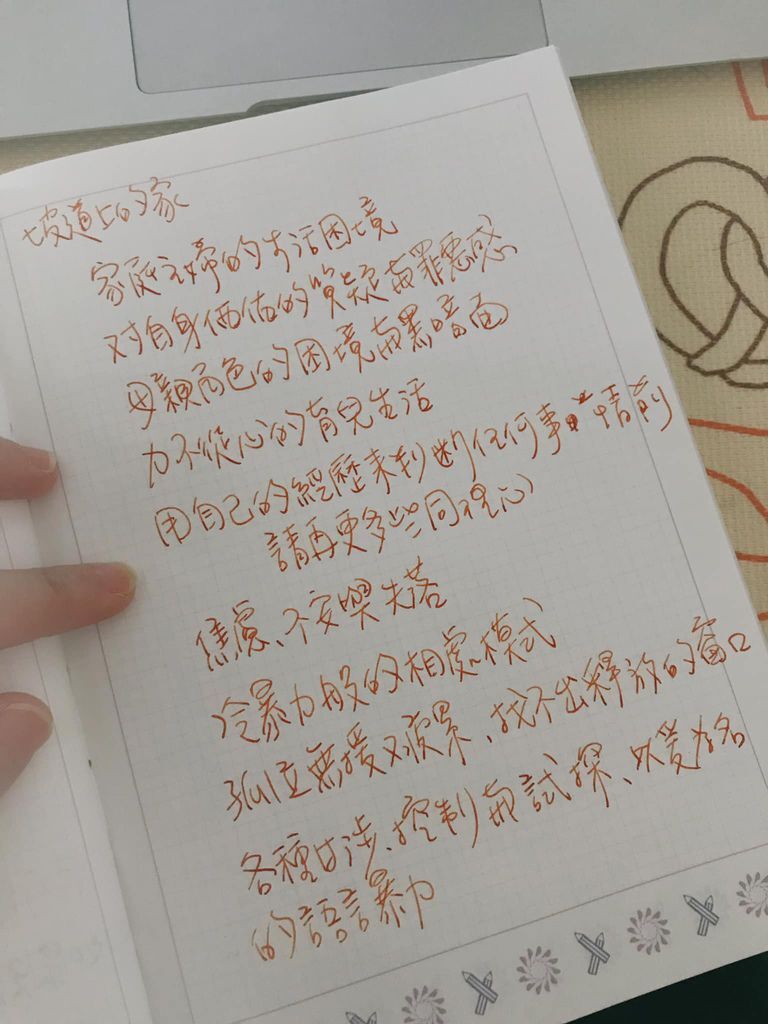 坡道上的家
家庭主婦的生活困境
对自身価估的質疑與罪惡感
母親角色的困境與黑暗面
力不從心的育兒生活
用自己的經歷來判断任何事情前
請再更多些同理心
焦慮、不安與失落
冷暴力般的相處模式
孤立無援又疲累、找不出釋放的窗口
各種干涉、控制與試探、以爱為名
的語言暴力